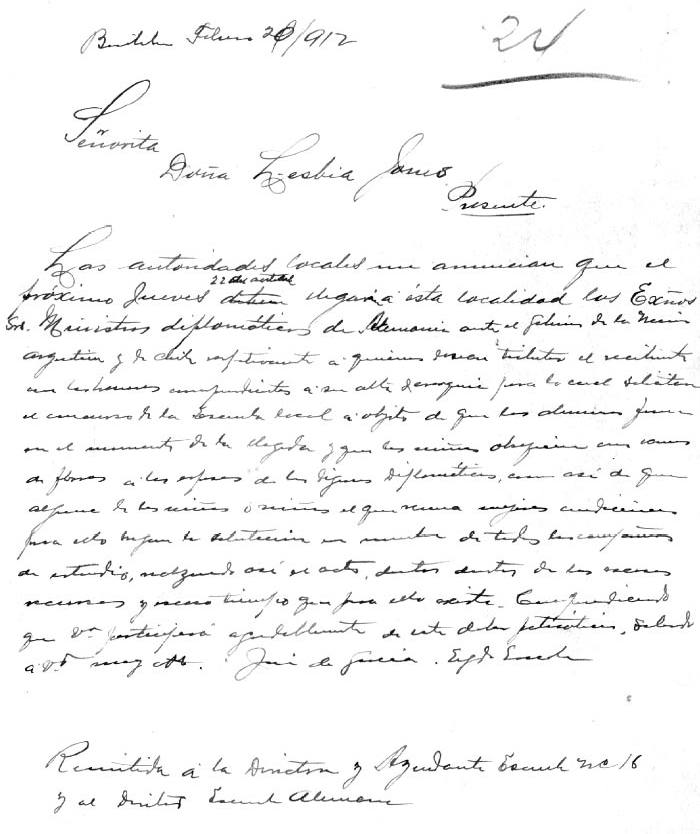 Febrero 20/912
24
Señorita
Doña Lesbia
Presente.
Las autoridades locales me anuncian que el
22 del actual
próximo Jueves llegarán a ésta localidad los Exmos
Sres. Ministros diplomáticos de Alemania ante el Gobierno de la Nación
Argentina y de Chile respectivamente a quienes desean tributar el recibimiento
con los honores correspondientes a su alta gerarquia para lo cual solicitan
el concurso de la Escuela local a objeto de que los alumnos formen
en el momento de la llegada y que las niñas obsequien con ramos
de flores a las esposas de los dignos Diplomáticos, como así de que
alguno de los niños o niñas el que reuna mejores condiciones
para ello haga la salutacion en nombre de todos los compañeros
de estudio, realzando así el acto, dentro de los escasos
recursos y escaso tiempo que para ello existe. Comprendiendo
que Vd. participará agradablemente de este deber patriótico, saludo
a Vd. muy atte. José de García. Engdo Escolar
Remitida a la Directora y Ayudante Escuela No 16
y al Director Escuela Alemana